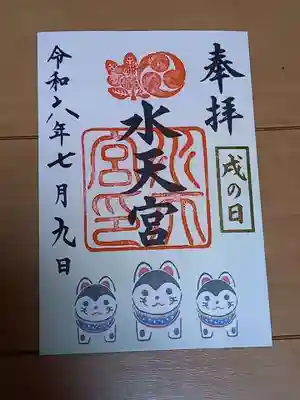 奉拝
戌の日
水天宮
水天宮印
令和六年七月九日